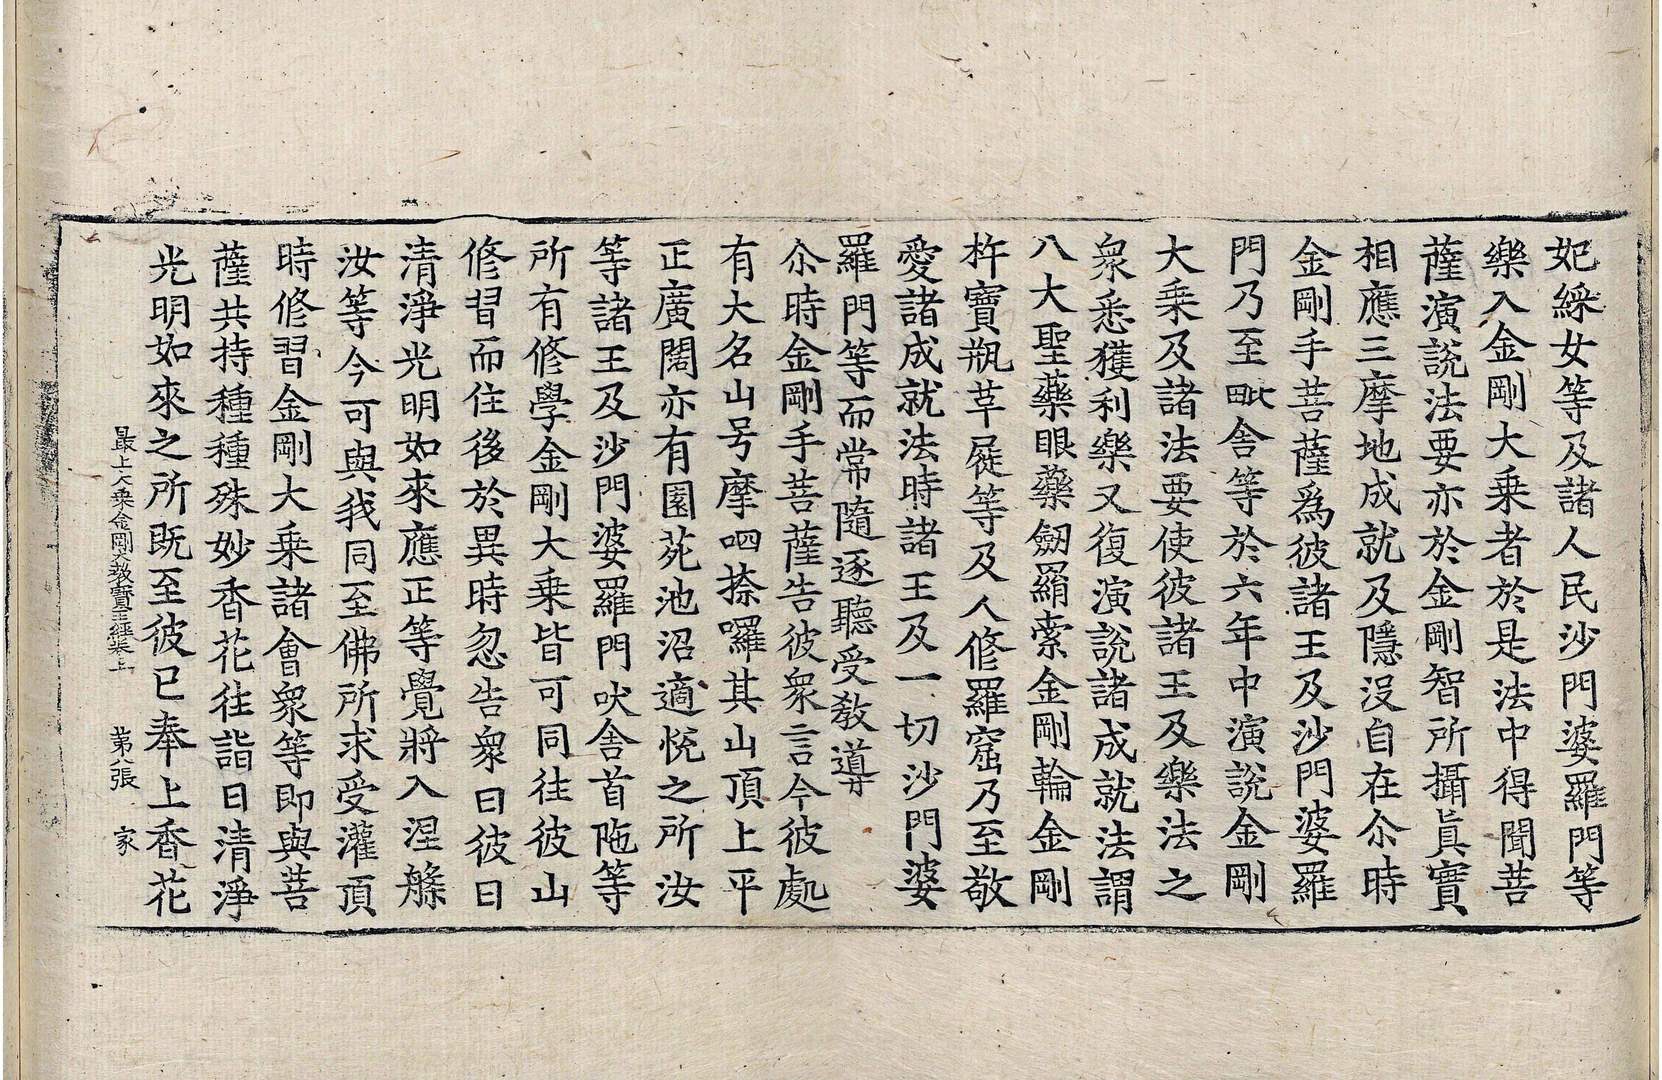 妃綵女等及諸人民沙門婆羅門等
樂入金剛大乘者於是法中得聞菩
薩演說法要亦於金剛智所攝眞實
相應三摩地成就及隱沒自在尒時
金剛手菩薩爲彼諸王及沙門婆羅
門乃至毗舍等於六年中演說金剛
大乘及諸法要使彼諸王及樂法之
衆悉獲利樂又復演說諸成就法謂
八大聖藥眼藥劒羂索金剛輪金剛
杵寶瓶草屣等及人修羅窟乃至敬
愛諸成就法時諸王及一切沙門婆
羅門等而常隨逐聽受教導
尒時金剛手菩薩告彼衆言今彼處
有大名山号摩呬捺囉其山頂上平
正廣闊亦有園苑池沼適悅之所汝
等諸王及沙門婆羅門吠舍首陁等
所有修學金剛大乘皆可同往彼山
修習而住後於異時忽告衆曰彼日
清淨光明如來應正等覺將入涅槃
汝等今可與我同至佛所求受灌頂
時修習金剛大乘諸會衆等即與菩
薩共持種種殊妙香花往詣日清淨
光明如來之所既至彼已奉上香花
最上大乘金剛大教寶王經卷上 第八張 家